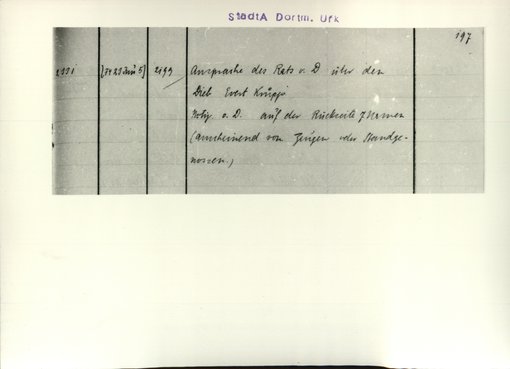 StadtA Dortm. Urk
197
2199 Ansprache des Rats v. D über den
Dieb Evert Krüpp
Notiz v. D. auf der Rückseite 7 Namen
(anscheinend von Zeugen oder Standge-
nossen.)